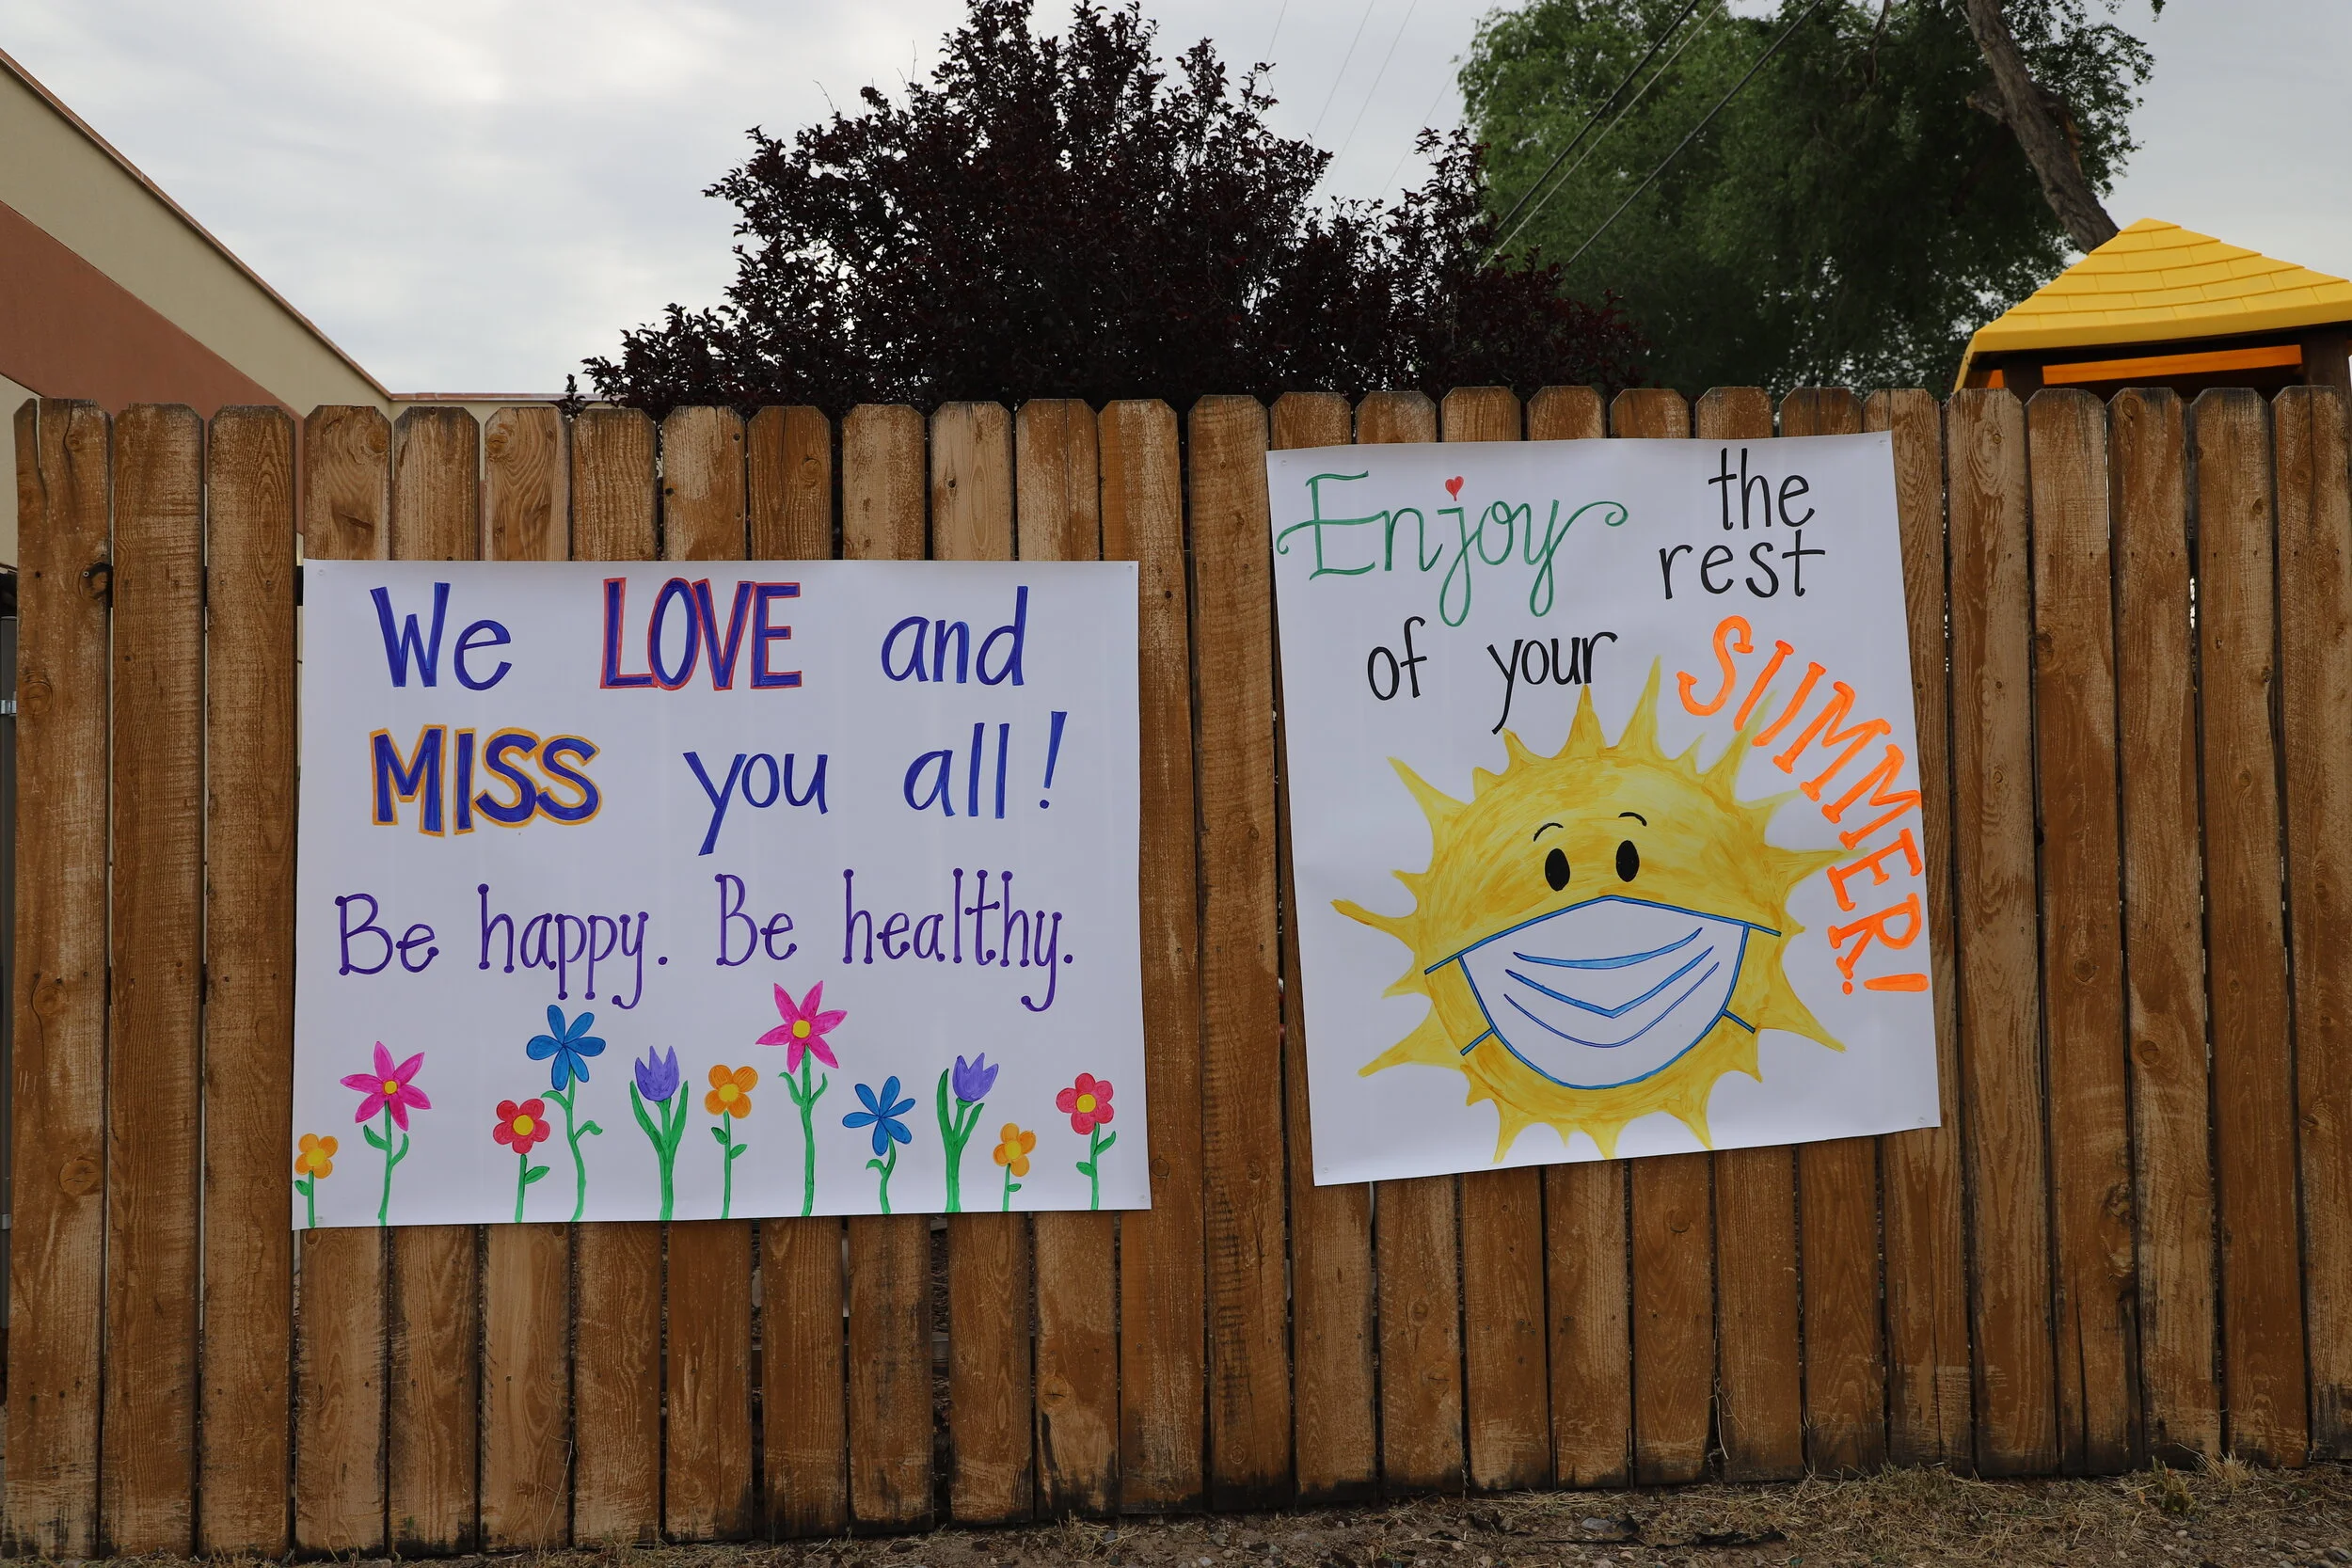 We LOVE and
MISS you all!
Be happy. Be healthy.
Enjoy the
rest
of your SUMMER!